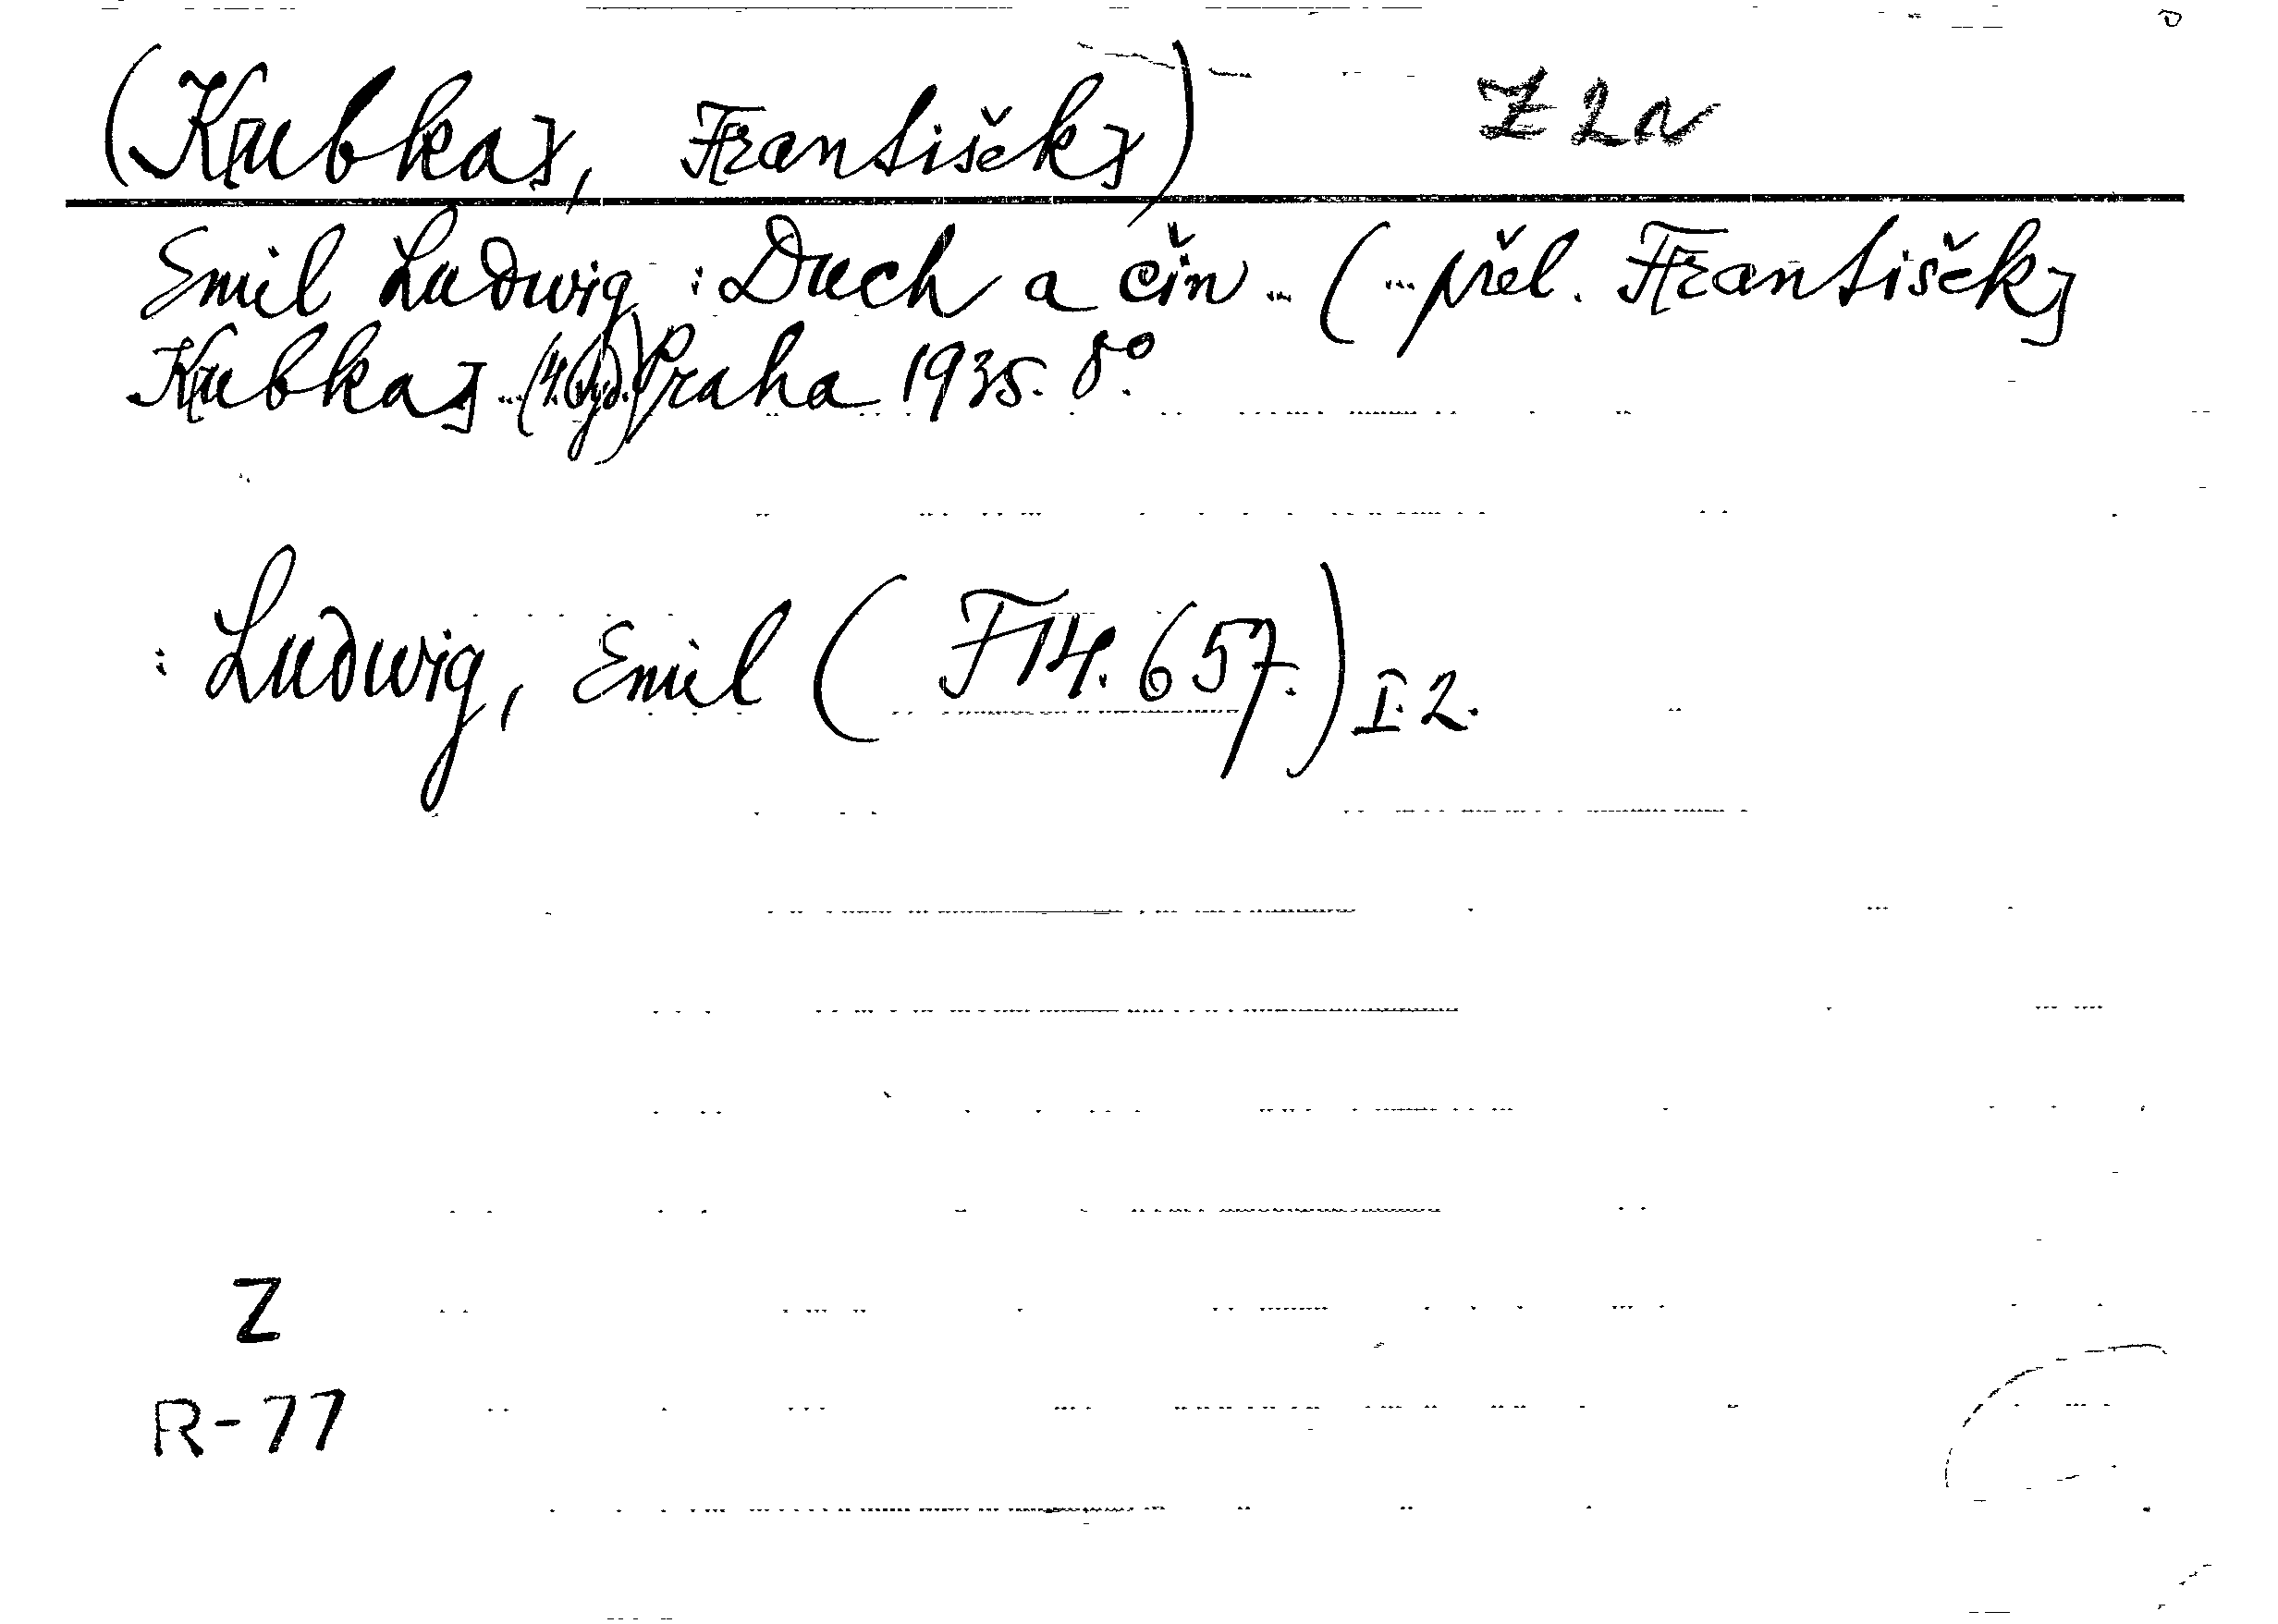 (K[ubka], F[rantišek]) Z 2 N
Emil Ludwig : Duch a čin ... (... přel. F[rantišek]
K[ubka] ... (4. vyd.) Praha 1935. 8°.
: Ludwig, Emil ( F 14.657.) I. 2.
Z
R-77